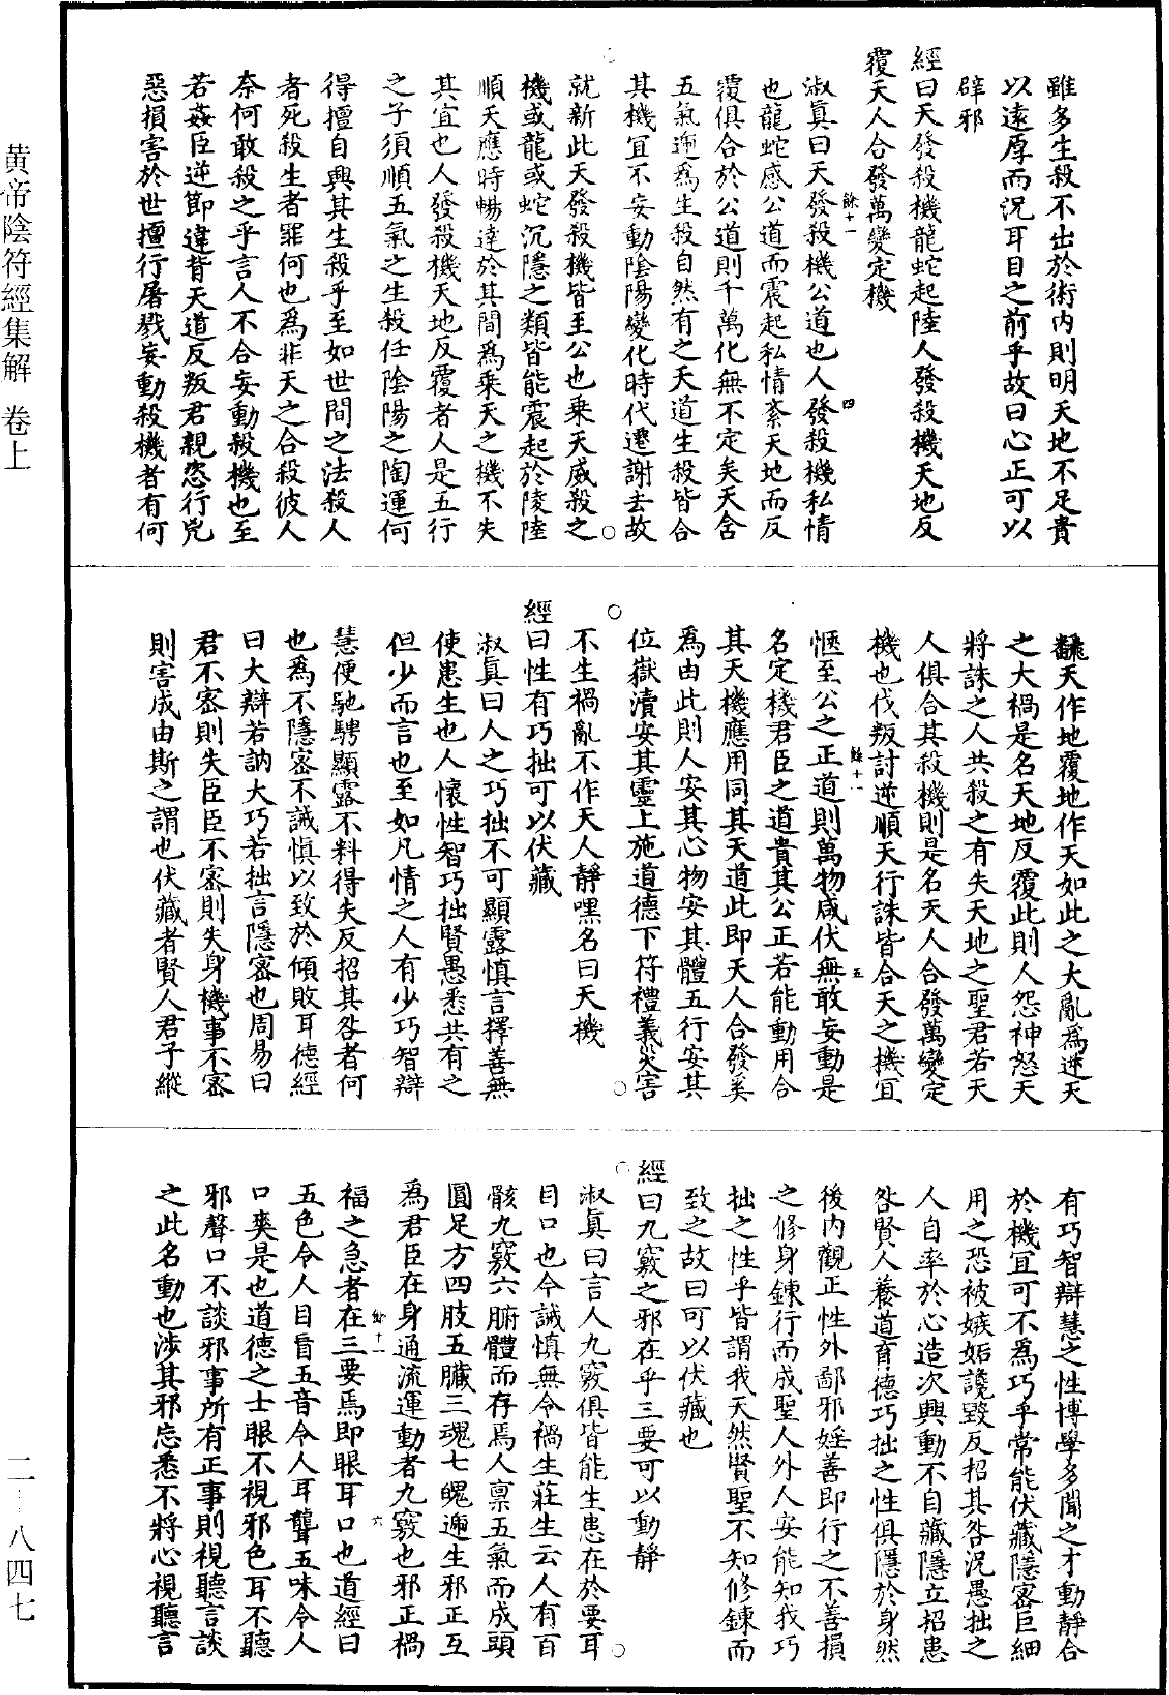 黄帝陰符經集解　卷上
二—八四七
雖多生殺不出於術內則明天地不足貴
以遠厚而況耳目之前乎故曰心正可以
辟邪
經曰天發殺機龍蛇起陸人發殺機天地反
覆天人合發萬變定機
淑眞曰天發殺機公道也人發殺機私情
也龍蛇感公道而震起私情紊天地而反
覆俱合於公道則千萬化無不定矣天含
五氣遞爲生殺自然有之天道生殺皆合
其機宜不妄動陰陽變化時代遷謝去故
就新此天發殺機皆至公也乘天威殺之
機或龍或蛇沉隱之類皆能震起於陵陸
順天應時暢達於其間爲乘天之機不失
其宜也人發殺機天地反覆者人是五行
之子須順五氣之生殺任陰陽之陶運何
得擅自興其生殺乎至如世間之法殺人
者死殺生者罪何也爲非天之合殺彼人
奈何敢殺之乎言人不合妄動殺機也至
若姦臣逆節違背天道反叛君親恣行兇
惡損害於世擅行屠戮妄動殺機者有何
餘十一
四
飜天作地覆地作天如此之大亂爲逆天
之大禍是名天地反覆此則人怨神怒天
將誅之人共殺之有失天地之聖君若天
人俱合其殺機則是名天人合發萬變定
機也伐叛討逆順天行誅皆合天之機宜
愜至公之正道則萬物咸伏無敢妄動是
名定機君臣之道貴其公正若能動用合
其天機應用同其天道此即天人合發矣
爲由此則人安其心物安其體五行安其
位嶽瀆安其靈上施道德下符禮義災害
不生禍亂不作天人靜嘿名曰天機
經曰性有巧拙可以伏藏
淑眞曰人之巧拙不可顯露慎言擇善無
使患生也人懷性智巧拙賢愚悉共有之
但少而言也至如凡情之人有少巧智辯
慧便馳騁顯露不料得失反招其咎者何
也爲不隱密不誡愼以致於傾敗耳德經
曰大辯若訥大巧若拙言隱密也周易曰
君不密則失臣臣不密則失身機事不密
則害成由斯之謂也伏藏者賢人君子縱
餘十一
五
有巧智辯慧之性博學多聞之才動靜合
於機宜可不爲巧乎常能伏藏隱密巨細
用之恐被嫉妬讒毀反招其咎況愚拙之
人自率於心造次興動不自藏隱立招患
咎賢人養道育德巧拙之性俱隱於身然
後內觀正性外鄙邪婬善即行之不善損
之修身鍊行而成聖人外人安能知我巧
拙之性乎皆謂我天然賢聖不知修鍊而
致之故曰可以伏藏也
經曰九竅之邪在乎三要可以動靜
淑眞曰言人九竅俱皆能生患在於要耳
目口也今誡慎無令禍生莊生云人有百
骸九竅六腑體而存焉人稟五氣而成頭
圓足方四肢五臟三魂七魄遞生邪正互
爲君臣在身通流運動者九竅也邪正禍
福之急者在三要焉即眼耳口也道經曰
五色令人目盲五音令人耳聾五味令人
口爽是也道德之士眼不視邪色耳不聽
邪聲口不談邪事所有正事則視聽言談
之此名動也涉其邪忘悉不將心視聽言
餘十一
六